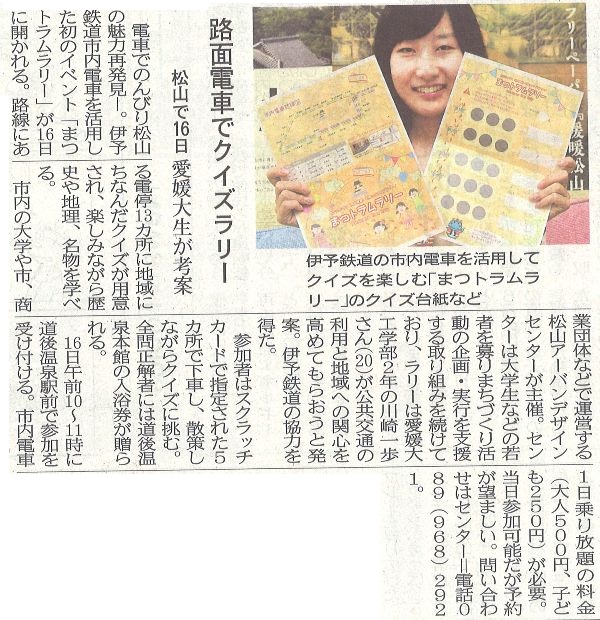 路面電車でクイズラリー
松山で16日 愛媛大生が考案
電車でのんびり松山
の魅力再発見―。伊予
鉄道市内電車を活用し
た初のイベント「まつ
トラムラリー」が16日
に開かれる。路線にあ
る電停13カ所に地域に
ちなんだクイズが用意
され、楽しみながら歴
史や地理、名物を学べ
る。
市内の大学や市、商
業団体などで運営する
松山アーバンデザイン
センターが主催。セン
ターは大学生などの若
者を募りまちづくり活
動の企画・実行を支援
する取り組みを続けて
おり、ラリーは愛媛大
工学部2年の川崎一歩
さん(20)が公共交通の
利用と地域への関心を
高めてもらおうと発
案。伊予鉄道の協力を
得た。
参加者はスクラッチ
カードで指定された5
カ所で下車し、散策し
ながらクイズに挑む。
全問正解者には道後温
泉本館の入浴券が贈ら
れる。
16日午前10~11時に
道後温泉駅前で参加を
受け付ける。市内電車
1日乗り放題の料金
(大人500円、子ど
も250円)が必要。
当日参加可能だが予約
が望ましい。問い合わ
せはセンター=電話0
89(968)292
1。
フリーペーパー
暖暖松山
まつトラムラリー
伊予鉄道の市内電車を活用して
クイズを楽しむ「まつトラムラ
リー」のクイズ台紙など